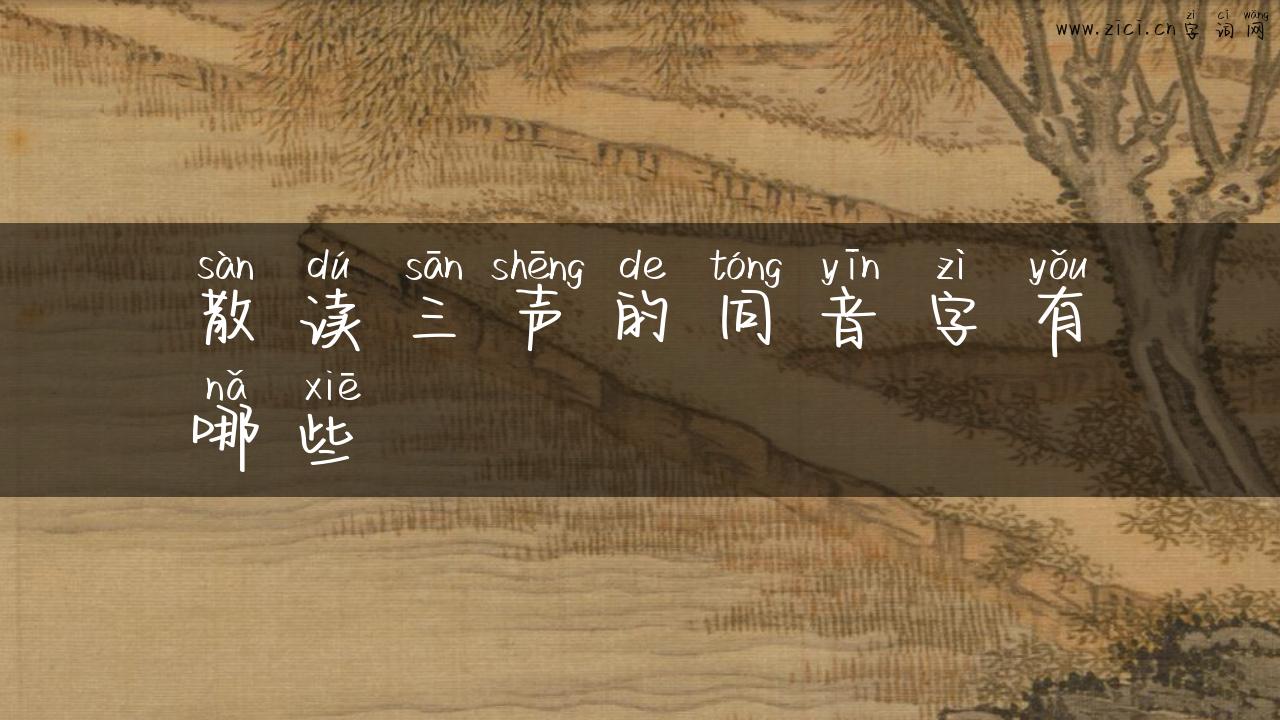 zì cí wǎng
www.zici.cn字词网
sàn dú sān shēng de tóng yīn zì yǒu
散读三声的同音字有
nǎ xiē
哪些